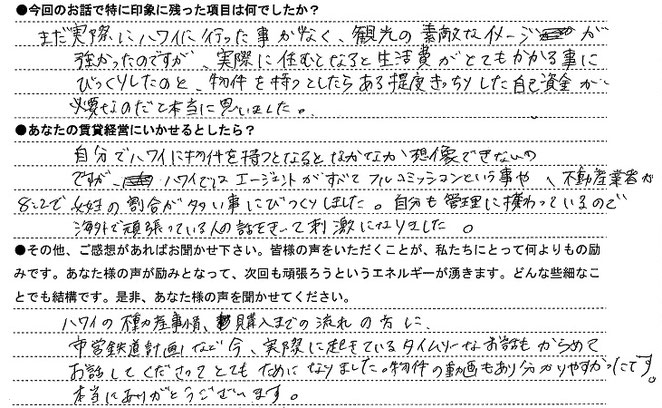 ●今回のお話で特に印象に残った項目は何でしたか？
まだ実際にハワイに行った事がなく、観光の素敵なイメージが
強かったのですが、実際に住むとなると生活費がとてもかかる事に
びっくりしたのと、物件を持つとしたらある程度きっちりした自己資金が
必要なのだと本当に思いました。
●あなたの賃貸経営にいかせるとしたら？
自分でハワイに物件を持つとなるとなかなか想像できないの
ですが、ハワイではエージェントがすべてフルコミッションという事や、不動産業者が
8:2で女性の割合が多い事にびっくりしました。自分も管理に携わっているので
海外で頑張っている人の話をきって刺激になりました。
●その他、ご感想があればお聞かせ下さい。皆様の声をいただくことが、私たちにとって何よりもの励
みです。あなた様の声が励みとなって、次回も頑張ろうというエネルギーが湧きます。どんな些細なこ
とでも結構です。是非、あなた様の声を聞かせてください。
ハワイの不動産事情、購入までの流れの方に、
市営鉄道計画など今、実際に起きているタイムリーなお話もからめて
お話してくださってとてもためになりました。物件の動画もあり分かりやすかったです。
本当にありがとうございます。